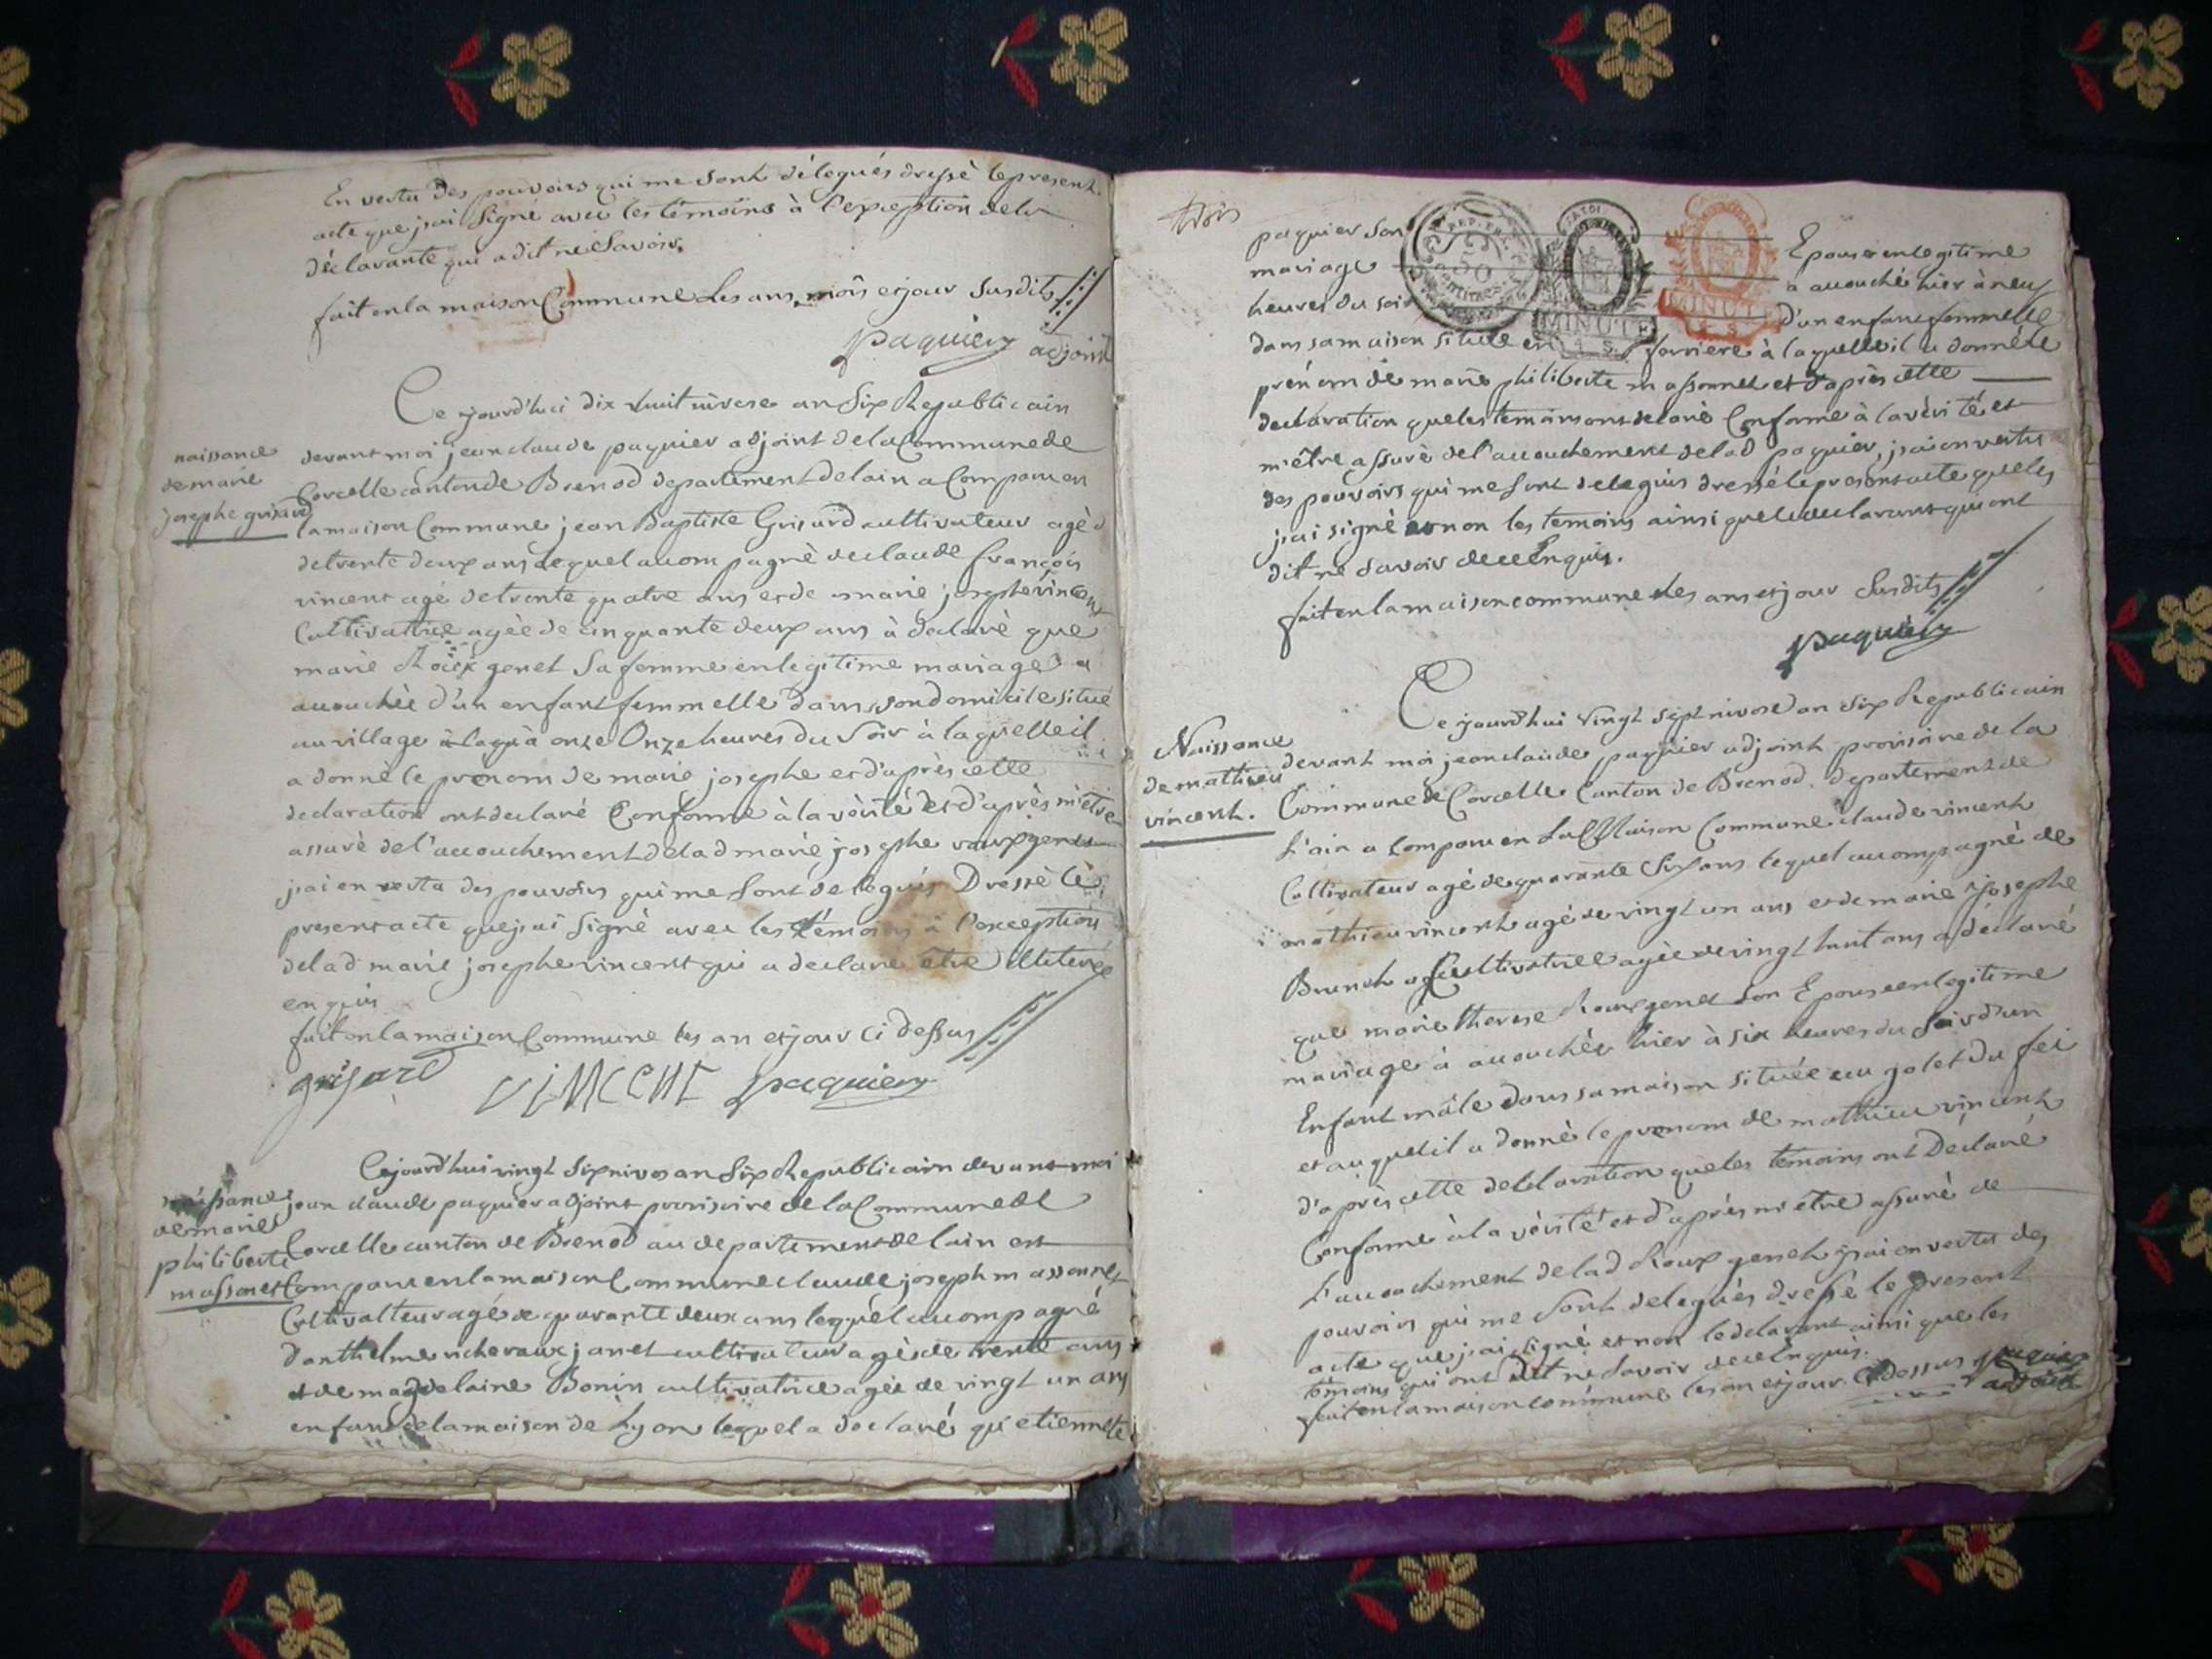 En vertu des pouvoirs qui me sont délegués dressé le present
acte que j'ai signé avec les témoins à l'exception dela
déclarante qui a dit ne savoir.
fait en la maison Commune Les ans mois et jour susdits
paquier adjoint
Ce jourd'hui dix huit nivose an six Republicain
naissance
de marie
josephe grisard
devant moi jean claude paquier adjoint de la Commune de
Corcelle canton de Brenod departement de lain a Comparu en
la maison Commune jean Baptiste Grisard cultivateur agé
de trente deux ans lequel accompagné de claude françois
vincent agé de trente quatre ans et de marie josephe vincent
Cultivatrice agée de cinquante deux ans à declaré que
marie genet sa femme en legitime mariage a
accouchée d'un enfant femmelle dans son domicile situé
au village à onze Onze heures du soir à laquelle il
a donné le prenom de marie josephe et d'après cette
declaration ont declaré Conforme à la vérité et d'après m'être
assuré de l'accouchement de lad marie josephe genet
j'ai en vertu des pouvoirs qui me sont delegués Dressé le
present acte que j'ai signé avec les témoins à l'exception
de lad marie josephe vincent qui a declaré être illiterée
enquis
fait en la maison Commune les an et jour ci dessus
grisard VINCENT paquier
Cejourd'hui vingt six nivos an six Republicain devant moi
naissance
de marie
philiberte
massonet
jean claude paquier adjoint provisoire de la Commune de
Corcelle canton de Brenod au departement de lain est
Comparu en la maison Commune claude joseph massonnet
Cultivatteur agé de quarante deux ans lequel accompagné
danthelme janet cultivateur agé de trente ans
et de magdelaine Bonin cultivatrice agée de vingt un ans
enfant de la maison de Lyon lequel a declaré qu'etiennete
trois
paquier son Epouse en legitime
mariage a accouché hier à neuf
heures du soir d'un enfant femmelle
REP. FRA.
50
centimes
MINUTE
MINUTE
dans sa maison située en ferriere à laquelle il a donné le
prénom de marie philiberte massonnet et d'après cette
declaration que les temoins ont declaré Conforme à la vérité et
m'être assuré de l'accouchement de lad paquier, j'ai en vertu
des pouvoirs qui me sont delegués dressé le present acte que les
j'ai signé et non les temoins ainsi que le declarant qui ont
dit ne savoir de ce Enquis.
fait en la maison commune les ans et jour susdits
paquier
Ce jourd'hui vingt sept nivose an six Republicain
Naissance
de mathieu
vincent.
devant moi jean claude paquier adjoint provisoire de la
Commune de Corcelle Canton de Brenod departement de
L'ain a Comparu en La Maison Commune claude vincent
Cultivateur agé de quarante six ans lequel accompagné de
mathieu vincent agé de vingt un ans et de marie josephe
Brunet Cultivatrice agée de vingt huit ans a déclaré
que marie therese Rouxgenet son Epouse en legitime
mariage à accouchée hier à six heures du soir d'un
Enfant mâle dans sa maison située au golet du fei
et auquel il a donné le prenom de mathieu vincent
d'après cette declaration que les témoins ont Déclaré
Conforme à la vérité et d'après m'être assuré de
L'accouchement de lad Roux genet j'ai en vertu des
pouvoirs qui me sont delegués dressé le present
acte que j'ai signé et non le declarant ainsi que les
témoins qui ont dit ne savoir de ce Enquis.
fait en la maison commune les an et jour Ci dessus paquier
adjoint